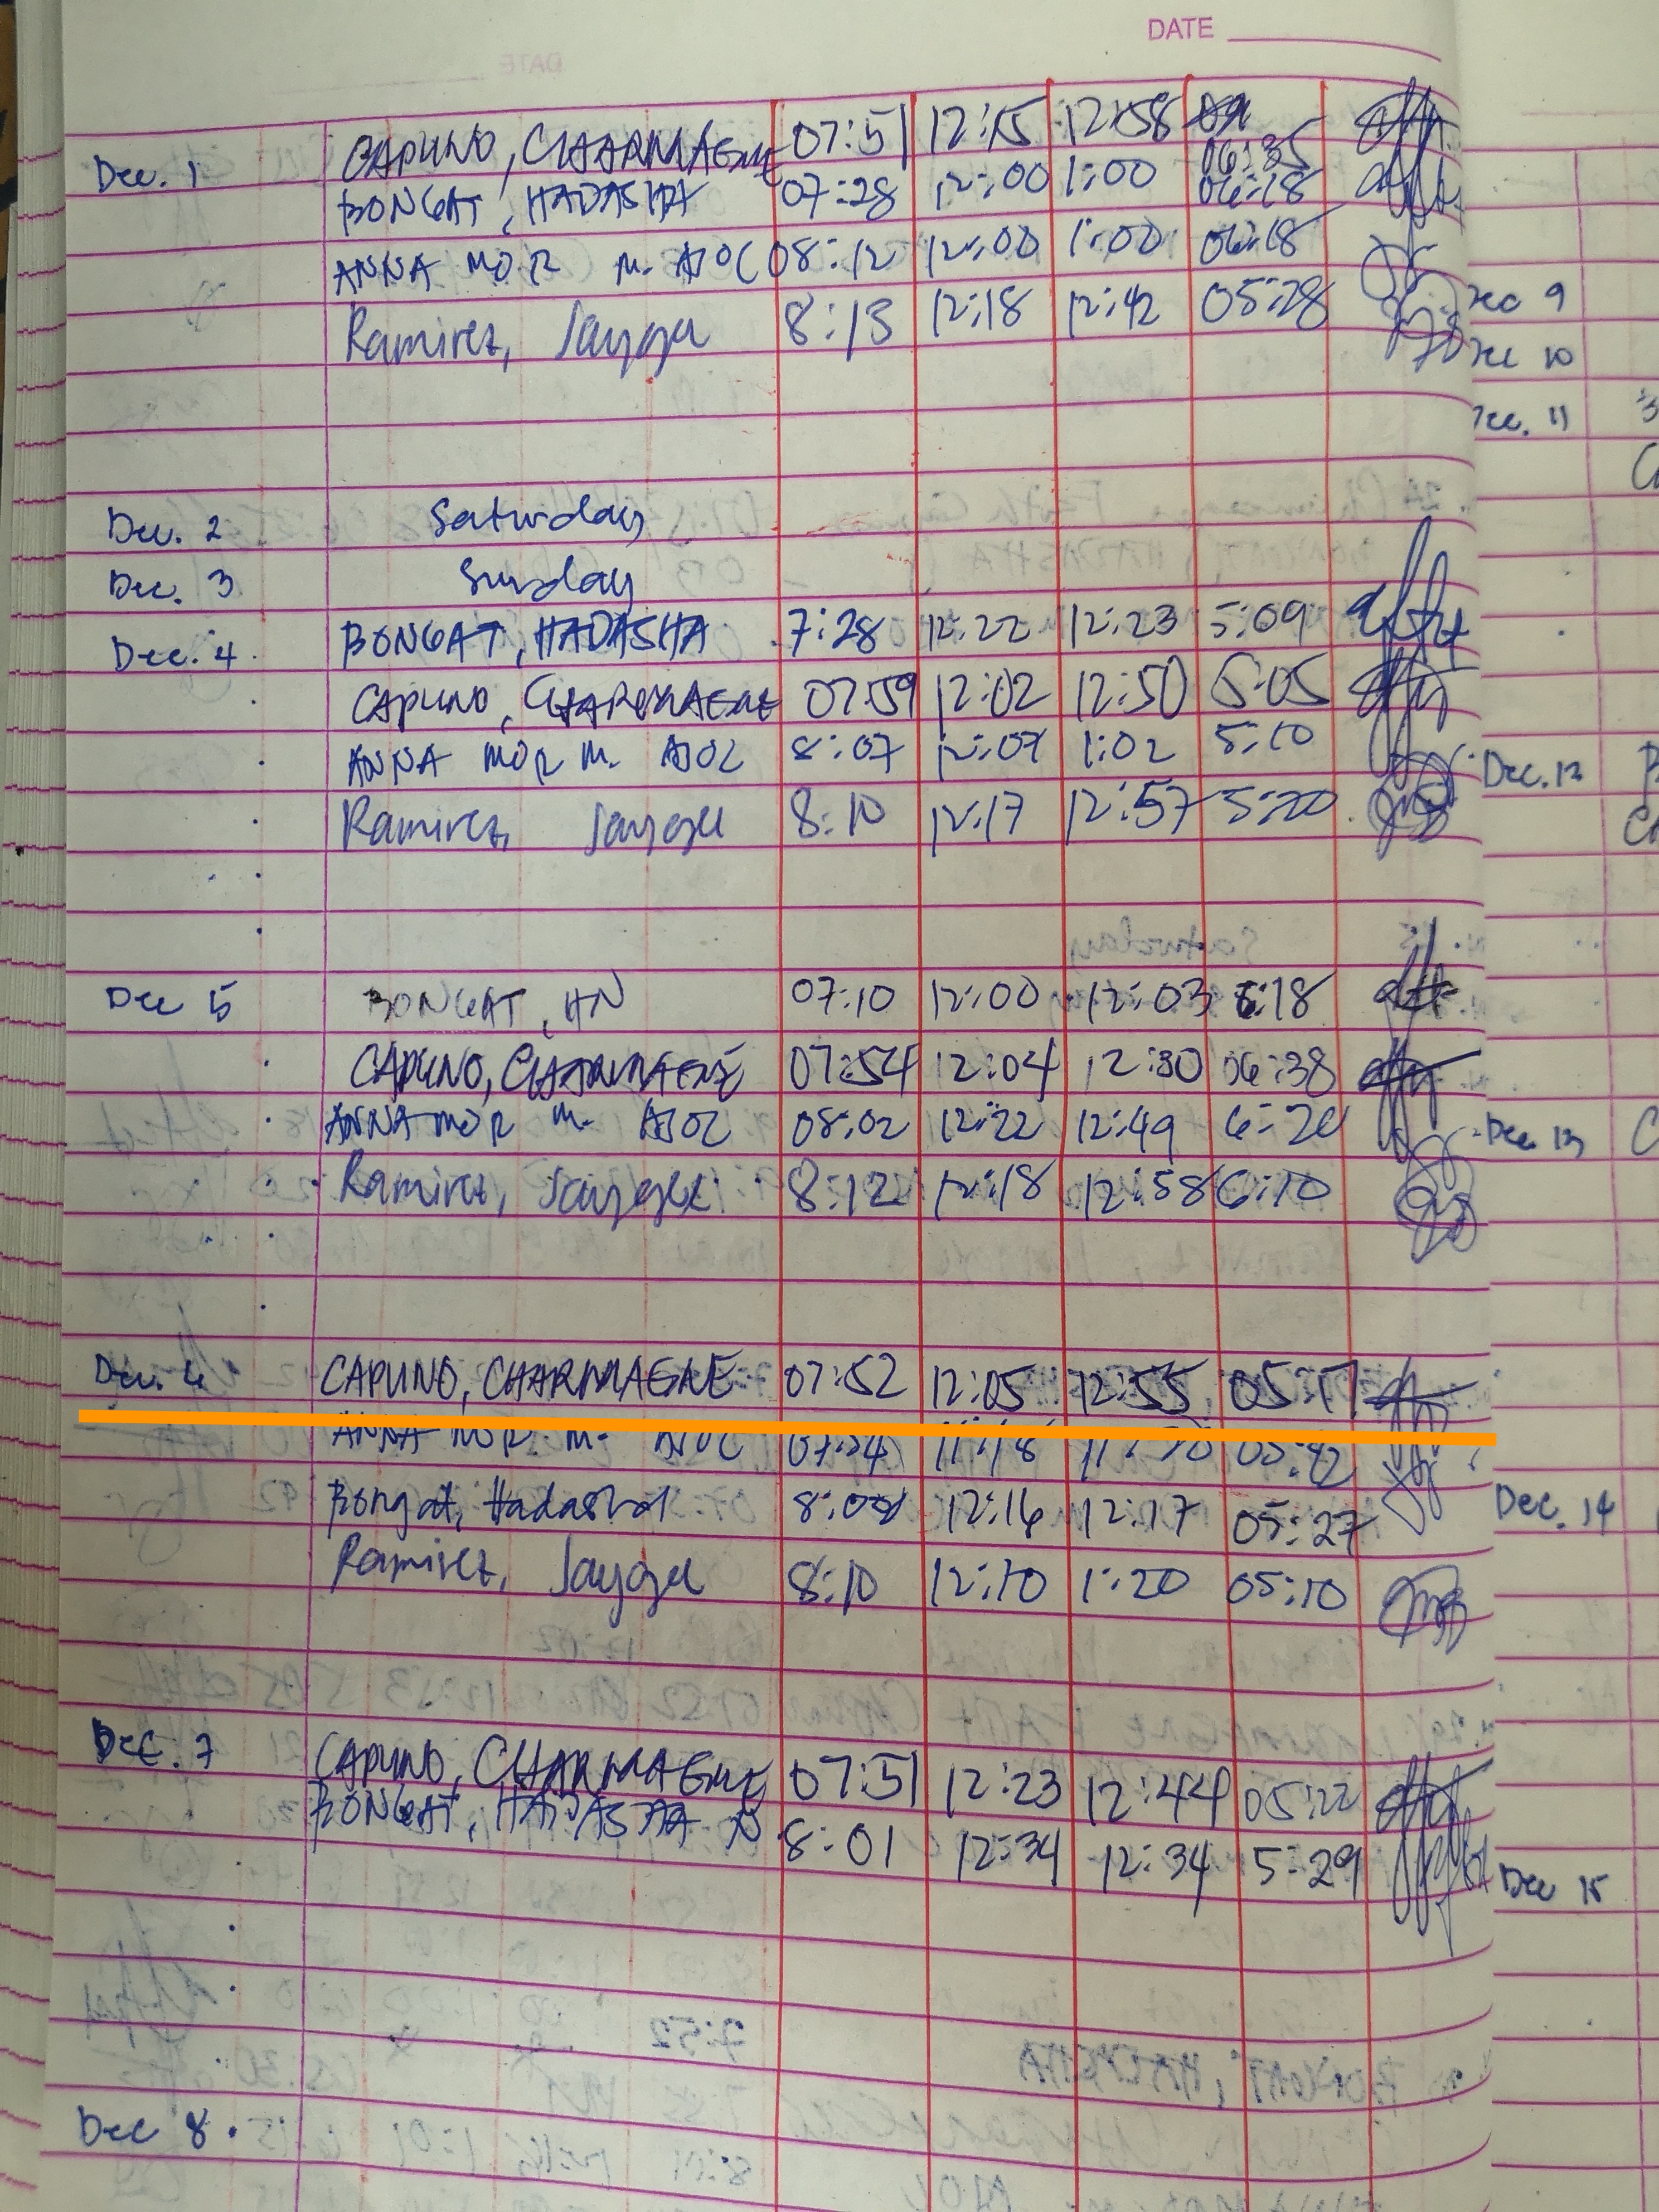 DATE
Dec. 1 CAPUNO, CHARMAGNE 07:51 12:15 12:58 06:35
BONGAT, HADASHA 07:28 12:00 1:00 06:18
ANNA MOR M. AJOC 08:12 12:00 1:00 06:18
Ramirez, Jaygee 8:13 12:18 12:42 05:28
Dec 9
Dec 10
Dec. 11
Dec. 2 Saturday
Dec. 3 Sunday
Dec. 4 BONGAT, HADASHA 7:28 12:22 12:23 5:09
CAPUNO, CHARMAGNE 07:59 12:02 12:50 5:05
ANNA MOR M. AJOC 8:07 12:07 1:02 5:10
Dec. 12
Ramirez, Jaygee 8:10 12:17 12:57 5:20
Dec 5 BONGAT, HN 07:10 12:00 12:03 6:18
CAPUNO, CHARMAGNE 07:54 12:04 12:30 06:38
ANNA MOR M. AJOC 08:02 12:22 12:49 6:20
Dec 13
Ramirez, Jaygee 8:12 12:18 12:58 6:10
Dec. 6 CAPUNO, CHARMAGNE 07:52 12:05 12:55 05:17
ANNA MOR M. AJOC
Bongat, Hadasha 12:16 12:17 05:27
Dec. 14
Ramirez, Jaygee 8:10 12:10 1:20 05:10
Dec. 7 CAPUNO, CHARMAGNE 07:51 12:23 12:44 05:22
BONGAT, HADASHA N 8:01 12:34 12:34 5:29
Dec 15
Dec 8